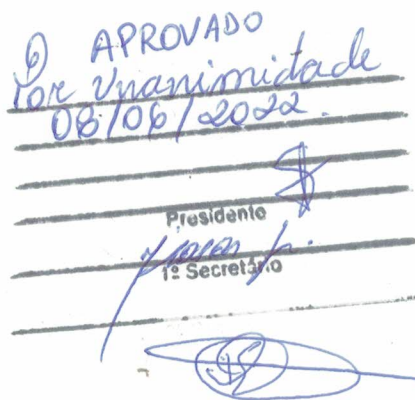 APROVADO
Por Unanimidade
08/06/2022.
Presidente
1º Secretário